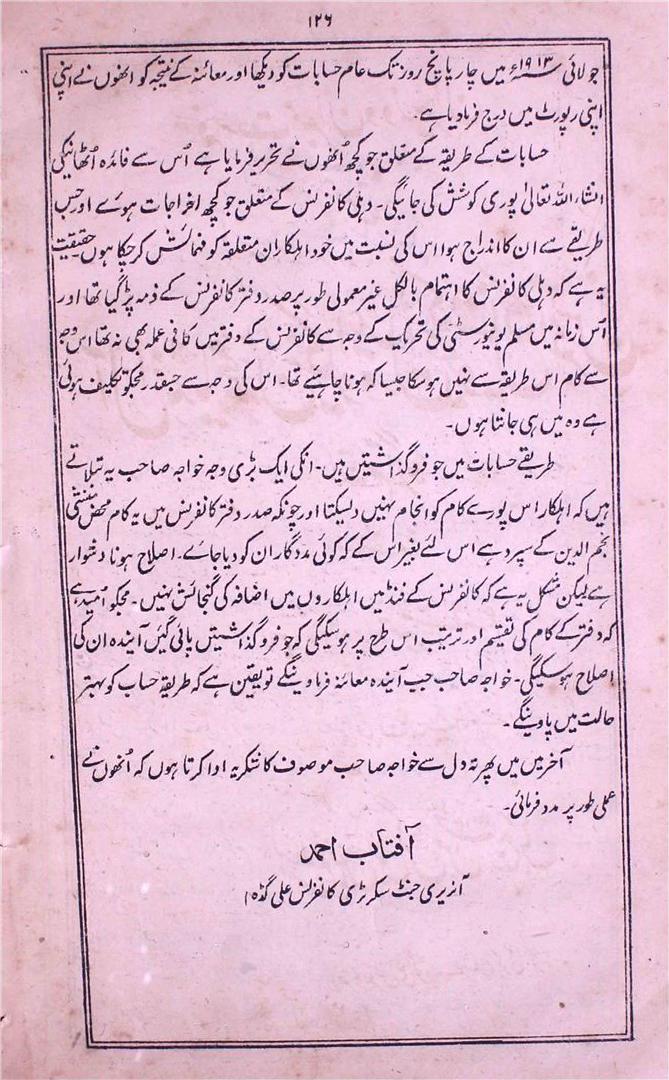 ۱۲۶
جولائی ۱۹۱۳ء میں چار پانچ روز تک عام حسابات کو دیکھا اور معائنہ کے نتیجہ کو انھوں نے اپنی
اپنی رپورٹ میں درج فرمادیا ہے۔
حسابات کے طریقہ کے متعلق جو کچھ اُنھوں نے تحریر فرمایا ہے اُس سے فائدہ اُٹھانیکی
انشاء اللہ تعالیٰ پوری کوشش کی جائیگی۔ دہلی کانفرنس کے متعلق جو کچھ اخراجات ہوے اور جس
طریقے سے ان کا اندراج ہوا اس کی نسبت میں خود اہلکاران متعلقہ کو فہمائش کرچکا ہوں حقیقت
یہ ہے کہ دہلی کانفرنس کا اہتمام بالکل غیر معمولی طور پر صدر دفتر کانفرنس کے ذمہ پڑگیا تھا اور
اُس زمانہ میں مسلم یونیورسٹی کی تحریک کے وجہ سے کانفرنس کے دفتر میں کافی عملہ بھی نہ تھا اس وجہ
سے کام اس طریقہ سے نہیں ہوسکا جیسا کہ ہونا چاہئیے تھا۔ اس کی وجہ سے جسقدر مجکو تکلیف ہوئی
ہے وہ میں ہی جانتا ہوں۔
طریقے حسابات میں جو فروگذاشتیں ہیں۔ انکی ایک بڑی وجہ خواجہ صاحب یہ بتلاتے
ہیں کہ اہلکار اس پورے کام کو انجام نہیں دلیسکتا اور چونکہ صدر دفتر کانفرنس میں یہ کام محض منشی
نجم الدین کے سپرد ہے اس لئے بغیر اس کے کہ کوئی مددگار ان کو دیا جاے۔ اصلاح ہونا دشوار
ہے لیکن مشکل یہ ہے کہ کانفرنس کے فنڈ میں اہلکاروں میں اضافہ کی گنجائش نہیں۔ مجکو اُمید ہے
کہ دفتر کے کام کی تقسیم اور ترتیب اس طرح پر ہوسکیگی کہ جو فروگذاشتیں پائی گئیں آیندہ ان کی
اصلاح ہوسکیگی۔ خواجہ صاحب جب آیندہ معائنہ فرماوینگے تو یقین ہے کہ طریقۂ حساب کو بہتر
حالت میں پاوینگے۔
آخر میں میں پھر تہ دل سے خواجہ صاحب موصوف کا شکریہ ادا کرتا ہوں کہ اُنھوں نے
عملی طور پر مدد فرمائی۔
آفتاب احمد
آنریری جنٹ سکرٹری کانفرنس علی گڈہ